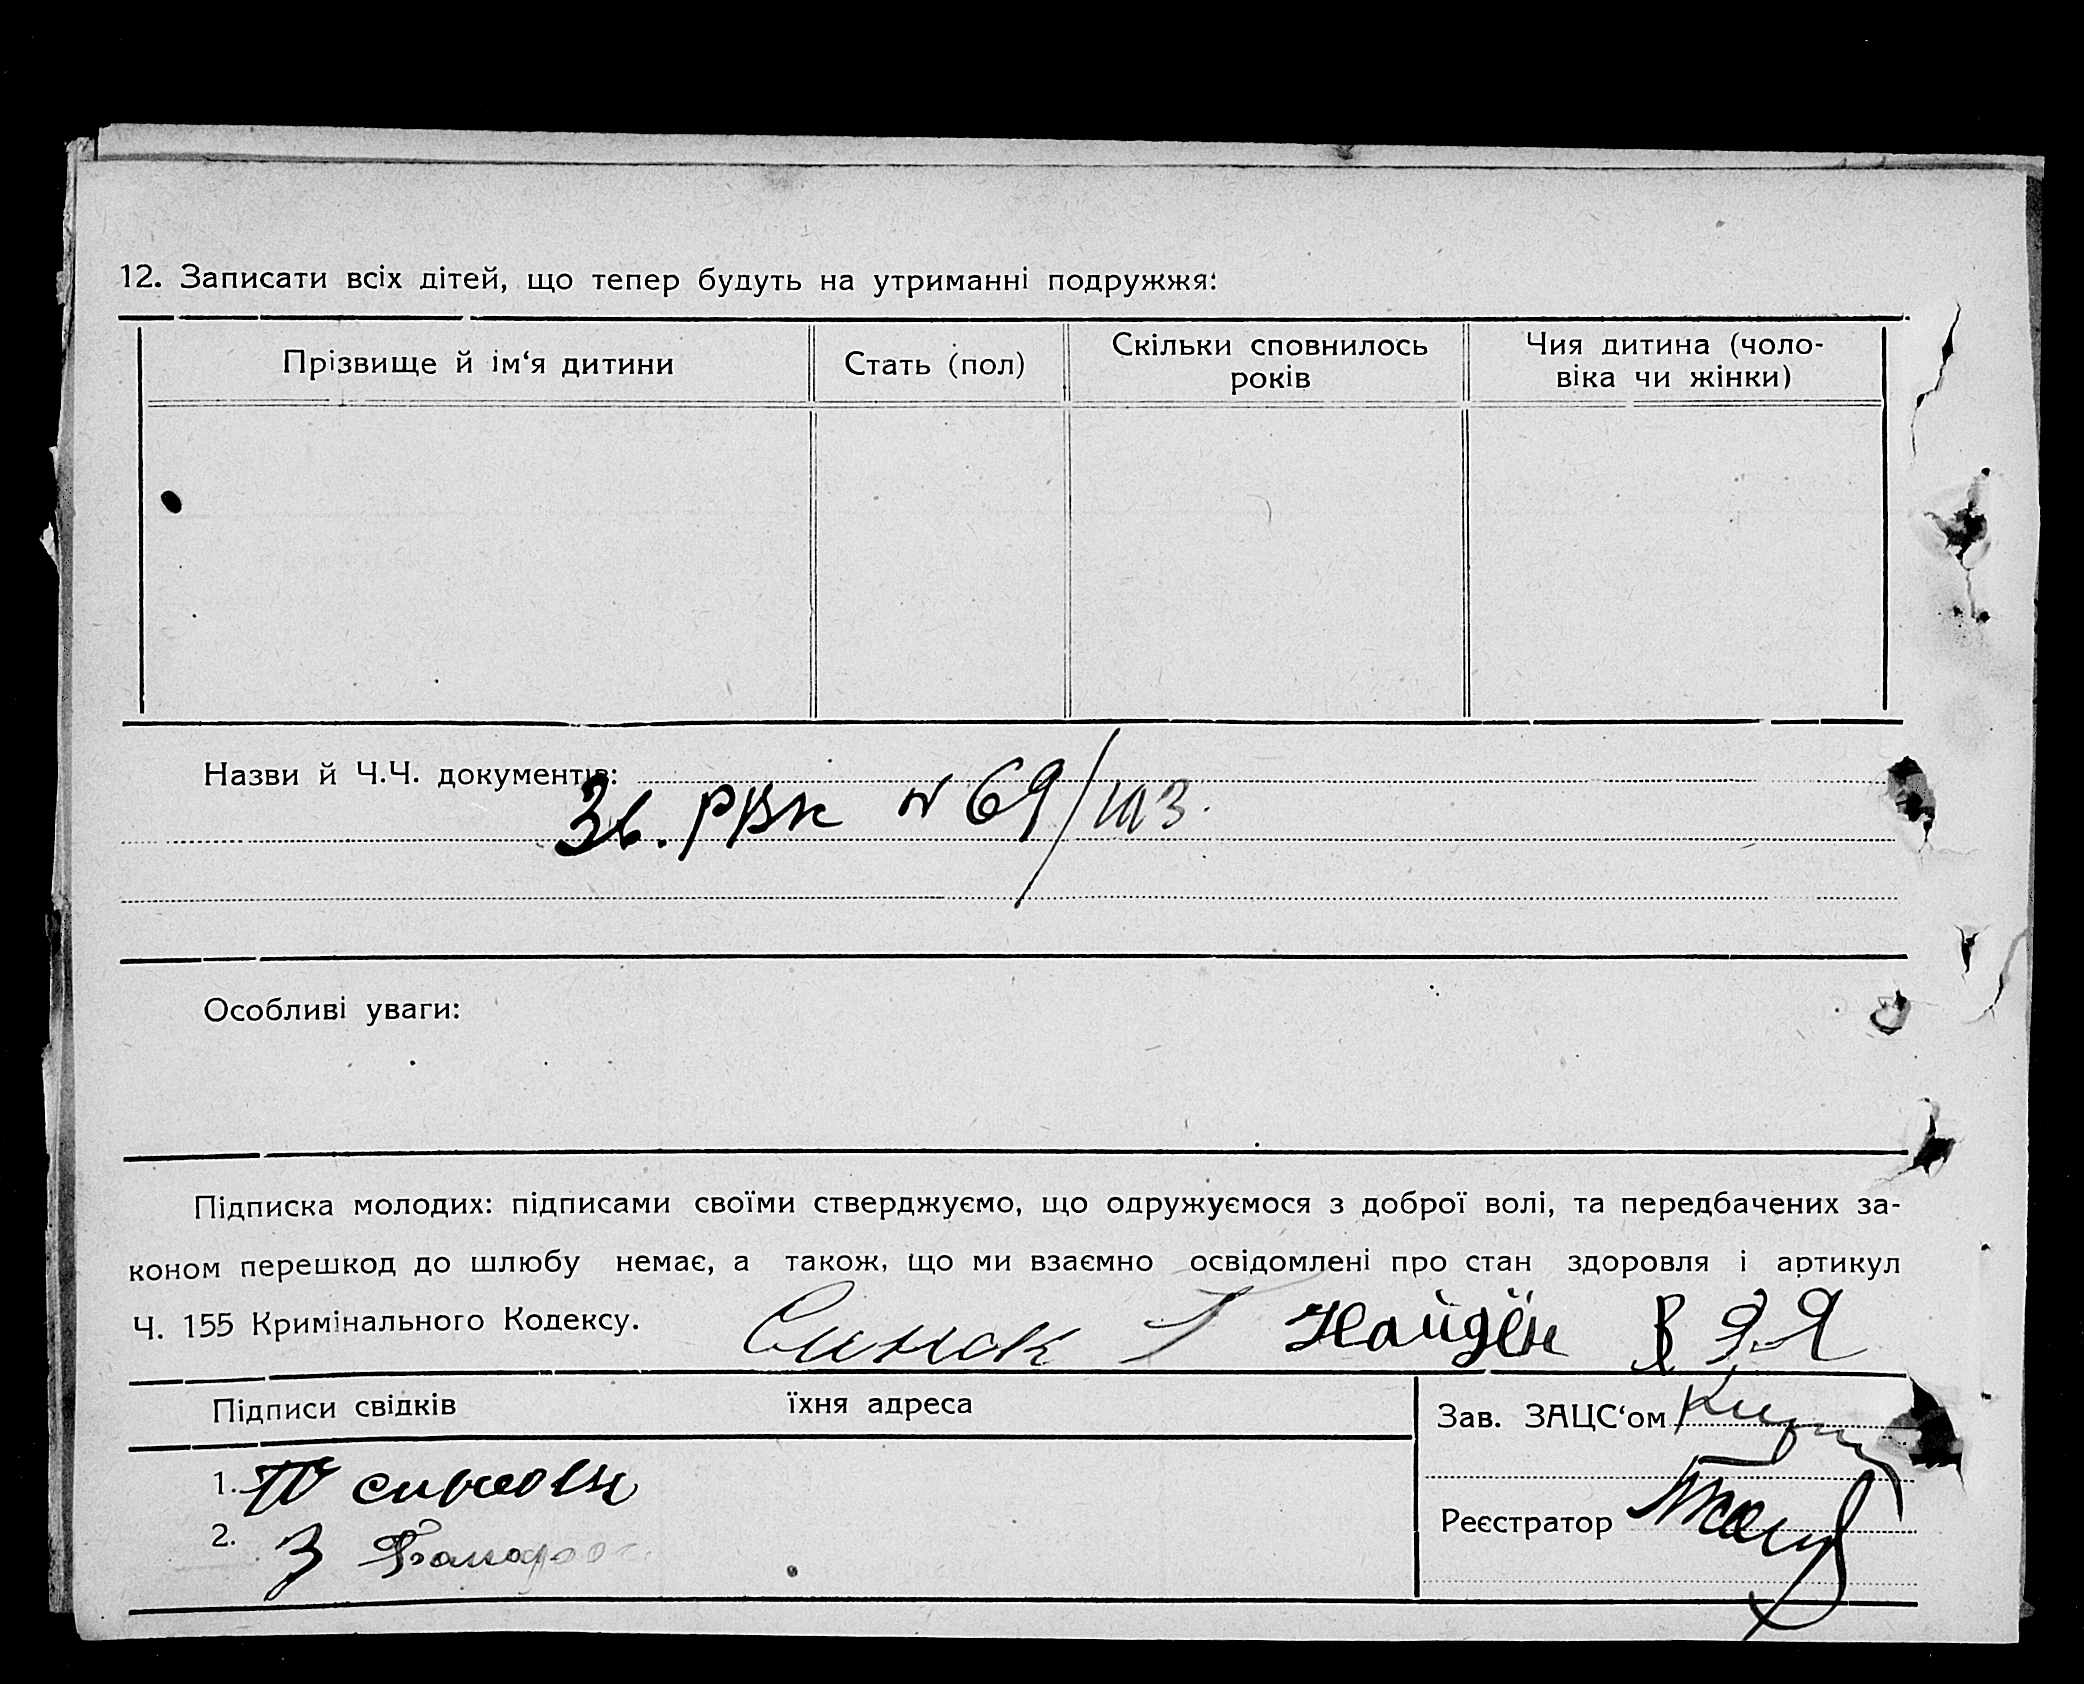 12. Записати всіх дітей, що тепер будуть на утриманні подружжя:
Прізвище й ім‘я дитини
Стать (пол)
Скільки сповнилось
років
Чия дитина (чоло-
віка чи жінки)
Назви й Ч.Ч. документів:
Зв. РВК № 69/
Особливі уваги:
Підписка молодих: підписами своїми стверджуємо, що одружуємося з доброї волі, та передбачених за-
коном перешкод до шлюбу немає, а також, що ми взаємно освідомлені про стан здоровля і артикул
Ч. 155 Кримінального Кодексу.
Синок Найдён
Підписи свідків їхня адреса
Зав. ЗАЦС‘ом
1.
2. З
Реєстратор